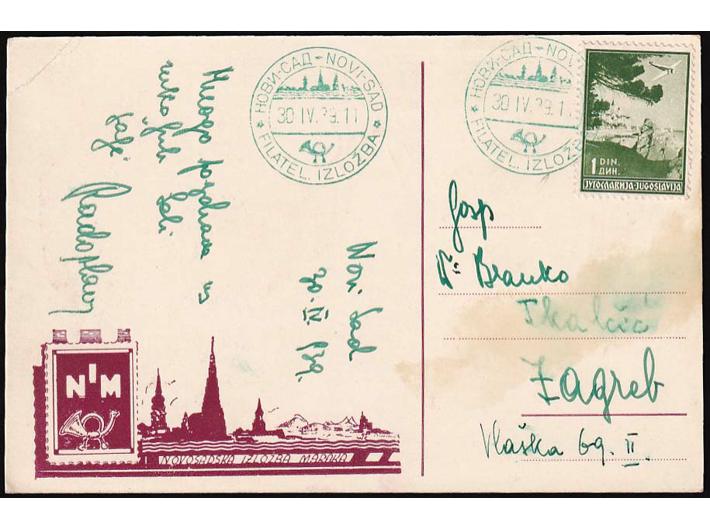 НОВИ-САД - NOVI-SAD
30 IV. 39. 11
FILATEL. IZLOŽBA
НОВИ-САД - NOVI
30 IV. 39. 11
FILATEL. IZLOŽB
1 DIN.
ДИН.
ЈУГОСЛАВИЈА-JUGOSLAVIJA
Mnogo pozdrava uz
rukoljub želi
Novi Sad
30. IV. 39.
NIM
NOVOSADSKA IZLOŽBA MARAKA
Gosp
Dr Branko
Tkalčić
Zagreb
Vlaška 69. II.